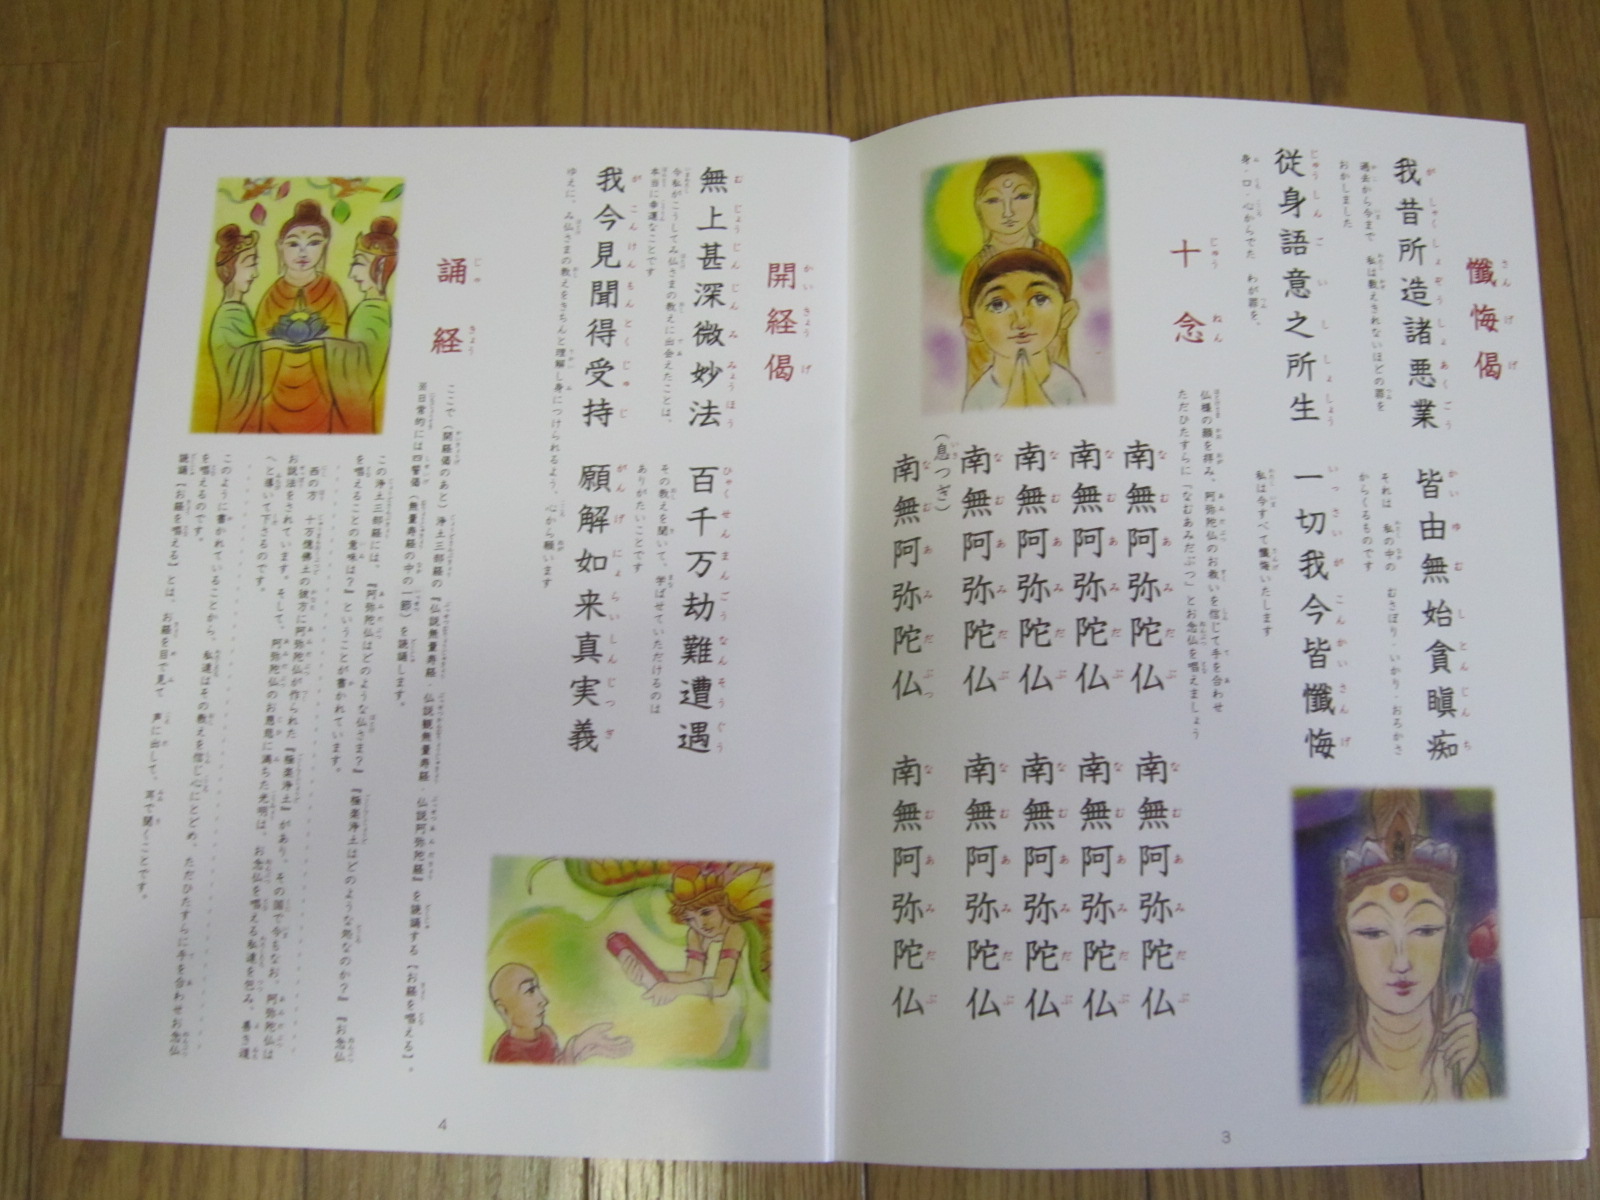 懺悔偈
我昔所造諸悪業 皆由無始貪瞋痴
過去から今まで 私は数えきれないほどの罪を
おかしました
それは 私の中の むさぼり・いかり・おろかさ
からくるものです
従身語意之所生 一切我今皆懺悔
身・口・心からでた わが罪を、
私は今すべて懺悔いたします
十念
仏様の願を拝み、阿弥陀仏のお救いを信じて手を合わせ
ただひたすらに「なむあみだぶつ」とお念仏を唱えましょう
南無阿弥陀仏 南無阿弥陀仏
南無阿弥陀仏 南無阿弥陀仏
南無阿弥陀仏 南無阿弥陀仏
南無阿弥陀仏 南無阿弥陀仏
(息つぎ)
南無阿弥陀仏 南無阿弥陀仏
3
開経偈
無上甚深微妙法 百千万劫難遭遇
今私がこうしてみ仏さまの教えに出会えたことは、
本当に幸運なことです
その教えを聞いて、学ばせていただけるのは
ありがたいことです
我今見聞得受持 願解如来真実義
ゆえに、み仏さまの教えをきちんと理解し身につけられるよう、心から願います
誦経
ここで(開経偈のあと)浄土三部経の『仏説無量寿経・仏説観無量寿経・仏説阿弥陀経』を読誦する[お経を唱える]。
※日常的には四誓偈(無量寿経の中の一節)を読誦します。
この浄土三部経には、『阿弥陀仏はどのような仏さま?』『極楽浄土はどのような処なのか?』『お念仏
を唱えることの意味は?』ということが書かれています。
西の方 十万億佛土の彼方に阿弥陀仏が作られた『極楽浄土』があり、その国で今もなお、阿弥陀仏は
お説法をされています。そして、阿弥陀仏のお慈悲に満ちた光明は、お念仏を唱える私達を包み、善き道
へと導いて下さるのです。
このように書かれていることから、私達はその教えを信じ心にとどめ、ただひたすらに手を合わせお念仏
を唱えるのです。
読誦[お経を唱える]とは、お経を目で見て 声に出して、耳で聞くことです。
4